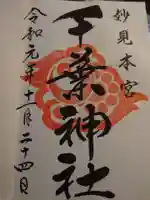 妙見本宮
千葉神社
令和元年十二月二十四日